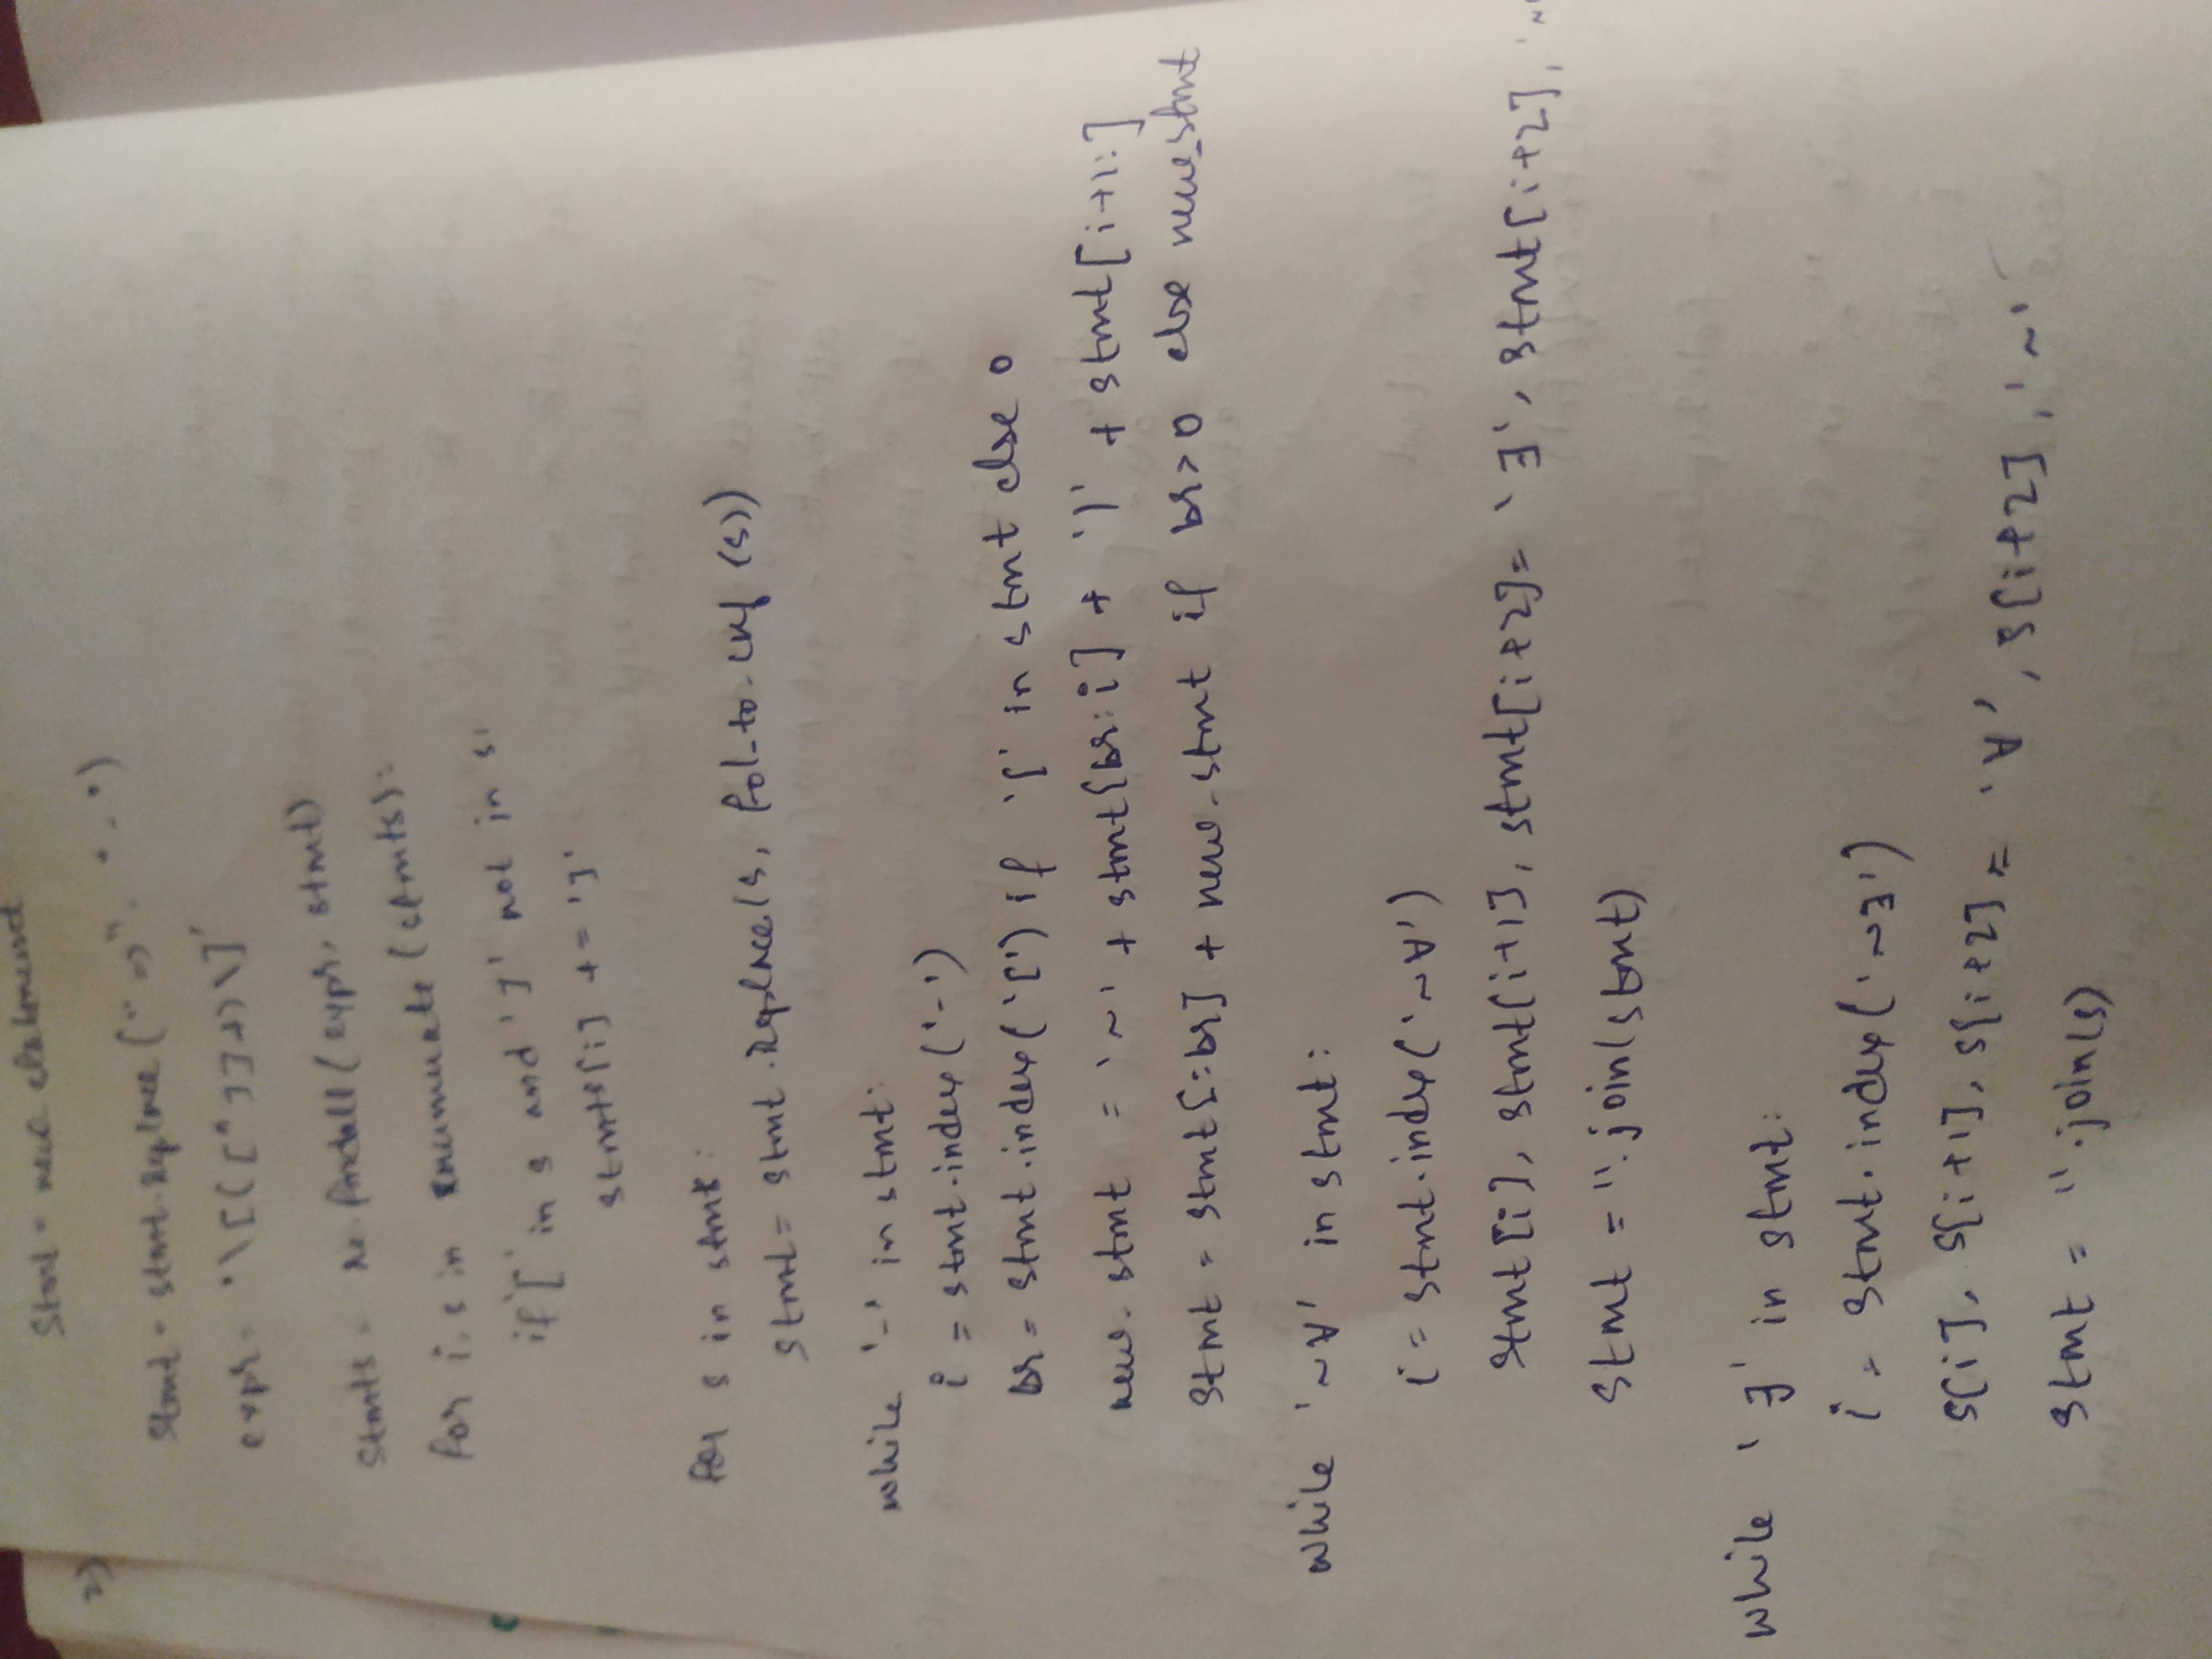 Stmt = new statement
2)
Stmt = stmt.replace("=>", "-")
expr = '\[([^]]+)\]'
Stmts = re.findall(expr, stmt)
for i, s in enumuate(stmts):
if '[' in s and ']' not in s:
stmts[i] += ']'
for s in stmts:
stmt = stmt.replace(s, fol-to-cnf(s))
while '-' in stmt:
i = stmt.index('-')
br = stmt.index('[') if '[' in stmt else 0
new-stmt = '~' + stmt[br:i] + '|' + stmt[i+1:]
stmt = stmt[:br] + new-stmt if br>0 else new_stmt
while '~∀' in stmt:
i = stmt.index('~∀')
stmt[i], stmt[i+1], stmt[i+2] = '∃', stmt[i+2], '~
stmt = ''.join(stmt)
while '∃' in stmt:
i = stmt.index('~∃')
s[i], s[i+1], s[i+2] = '∀', s[i+2], '~'
stmt = ''.join(s)